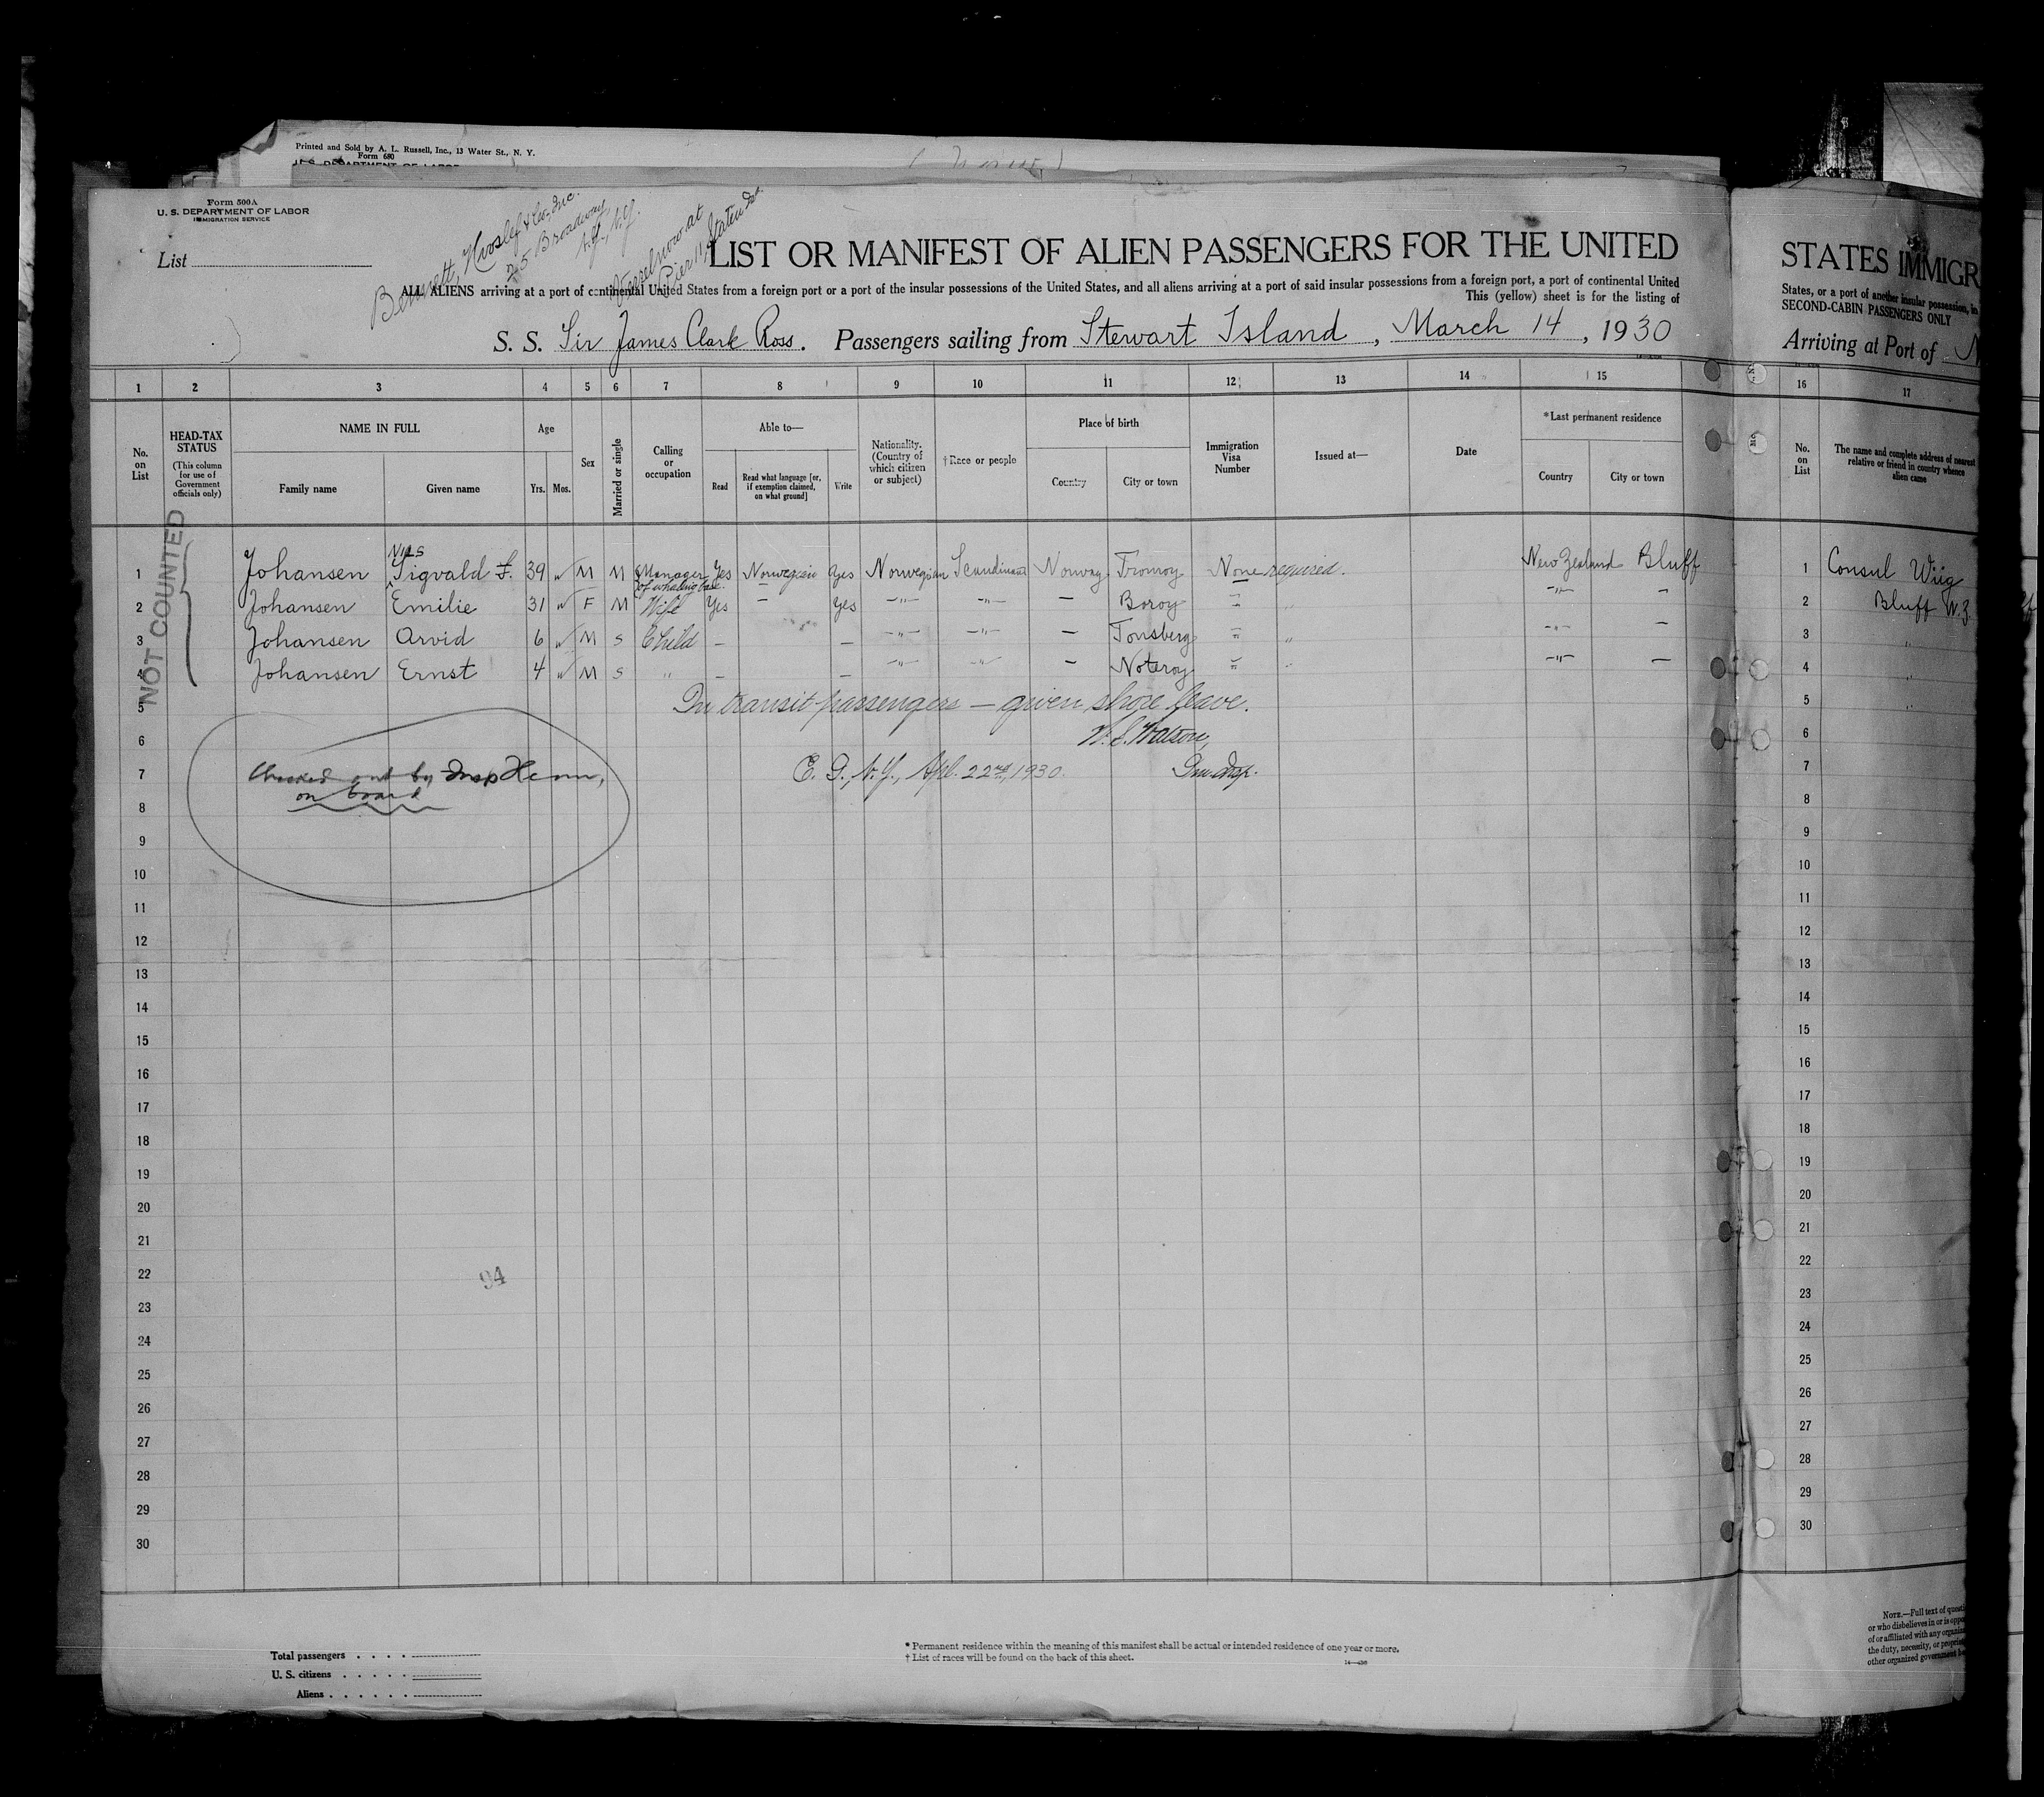 Printed and Sold by A. L. Russell, Inc., 13 Water St., N. Y.
Form 680
U. S. DEPARTMENT OF LABOR
Form 500A
U. S. DEPARTMENT OF LABOR
IMMIGRATION SERVICE
List
Bennett, Hvoslef & Co. Inc.
25 Broadway
N.Y., N.Y.
Vessel now at
Pier 11, Staten Isl.
LIST OR MANIFEST OF ALIEN PASSENGERS FOR THE UNITED
ALL ALIENS arriving at a port of continental United States from a foreign port or a port of the insular possessions of the United States, and all aliens arriving at a port of said insular possessions from a foreign port, a port of continental United
This (yellow) sheet is for the listing of
S. S. Sir James Clark Ross. Passengers sailing from Stewart Island, March 14, 1930
1 2 3 4 5 6 7 8 9 10 11 12 13 14 15
No. on List
HEAD-TAX STATUS
(This column for use of Government officials only)
NAME IN FULL
Family name
Given name
Age
Yrs.
Mos.
Sex
Married or single
Calling or occupation
Able to—
Read
Read what language [or, if exemption claimed, on what ground]
Write
Nationality. (Country of which citizen or subject)
†Race or people
Place of birth
Country
City or town
Immigration Visa Number
Issued at—
Date
*Last permanent residence
Country
City or town
NOT COUNTED
Nils
1 Johansen Sigvald F. 39 M M Manager of whaling base Yes Norwegian Yes Norwegian Scandinavian Norway Tromoy None required. New Zealand Bluff
2 Johansen Emilie 31 F M Wife Yes — Yes —"— —"— — Boroy " " —"— —
3 Johansen Arvid 6 M S Child — — —"— —"— — Tonsberg " " —"— —
4 Johansen Ernst 4 M S " — — —"— —"— — Noteroy " " —"— —
5 In transit passengers — given shore leave.
6 W. S. Watson,
7 Checked out by Insp E. I., N.Y., Apl. 22nd, 1930. Imm. Insp.
on board
8
9
10
11
12
13
14
15
16
17
18
19
20
21
22 94
23
24
25
26
27
28
29
30
Total passengers
U. S. citizens
Aliens
* Permanent residence within the meaning of this manifest shall be actual or intended residence of one year or more.
† List of races will be found on the back of this sheet.
STATES IMMIGR
States, or a port of another insular possession, in
SECOND-CABIN PASSENGERS ONLY
Arriving at Port of N
16 17
No. on List
The name and complete address of nearest relative or friend in country whence alien came
1 Consul Wiig
2 Bluff N.Z.
3 "
4
5 "
6
7
8
9
10
11
12
13
14
15
16
17
18
19
20
21
22
23
24
25
26
27
28
29
30
NOTE.—Full text of questi
or who disbelieves in or is oppo
of or affiliated with any organiza
the duty, necessity, or propri
other organized government